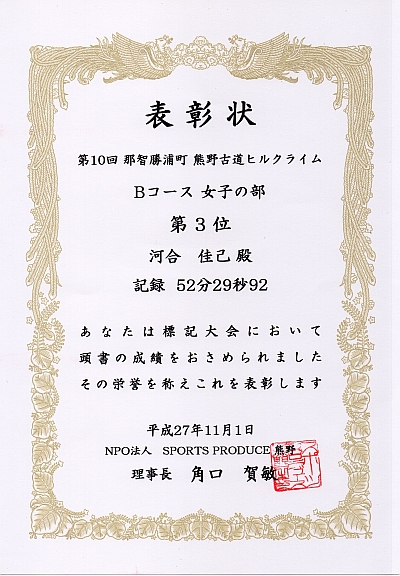 表彰状
第10回 那智勝浦町 熊野古道ヒルクライム
Bコース 女子の部
第3位
河合 佳己 殿
記録 52分29秒92
あなたは標記大会において
頭書の成績をおさめられました
その栄誉を称えこれを表彰します
平成27年11月1日
NPO法人 SPORTS PRODUCE 熊野
理事長 角口 賀敏